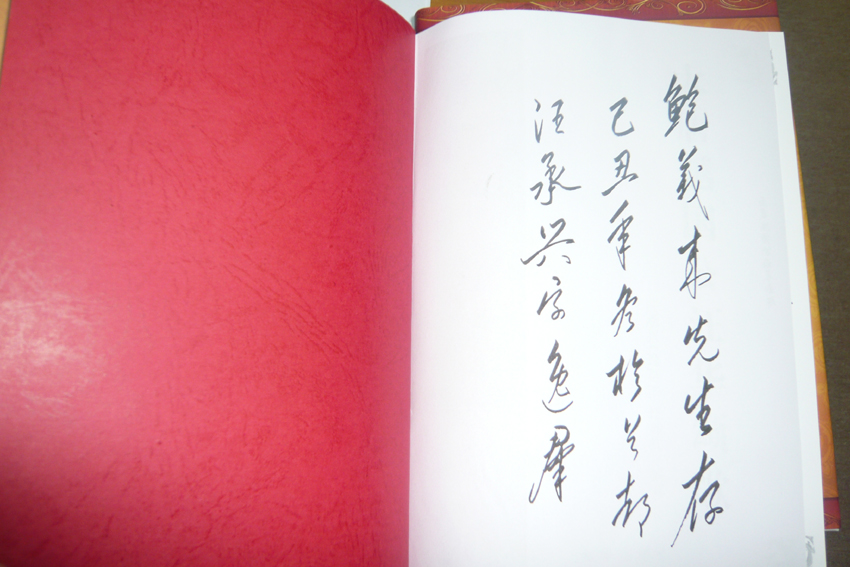 鲍義来先生存
己丑年冬於首都
汪承兴字逸群